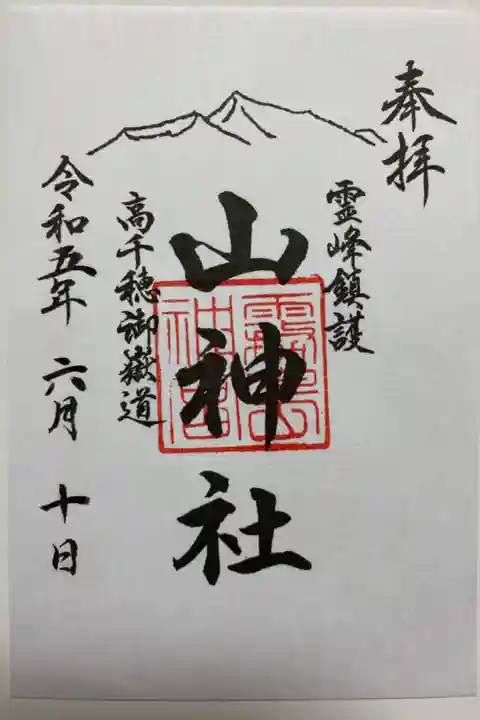 奉拝
霊峰鎮護
山神社
霧島神宮
高千穂御嶽道
令和五年 六月 十日